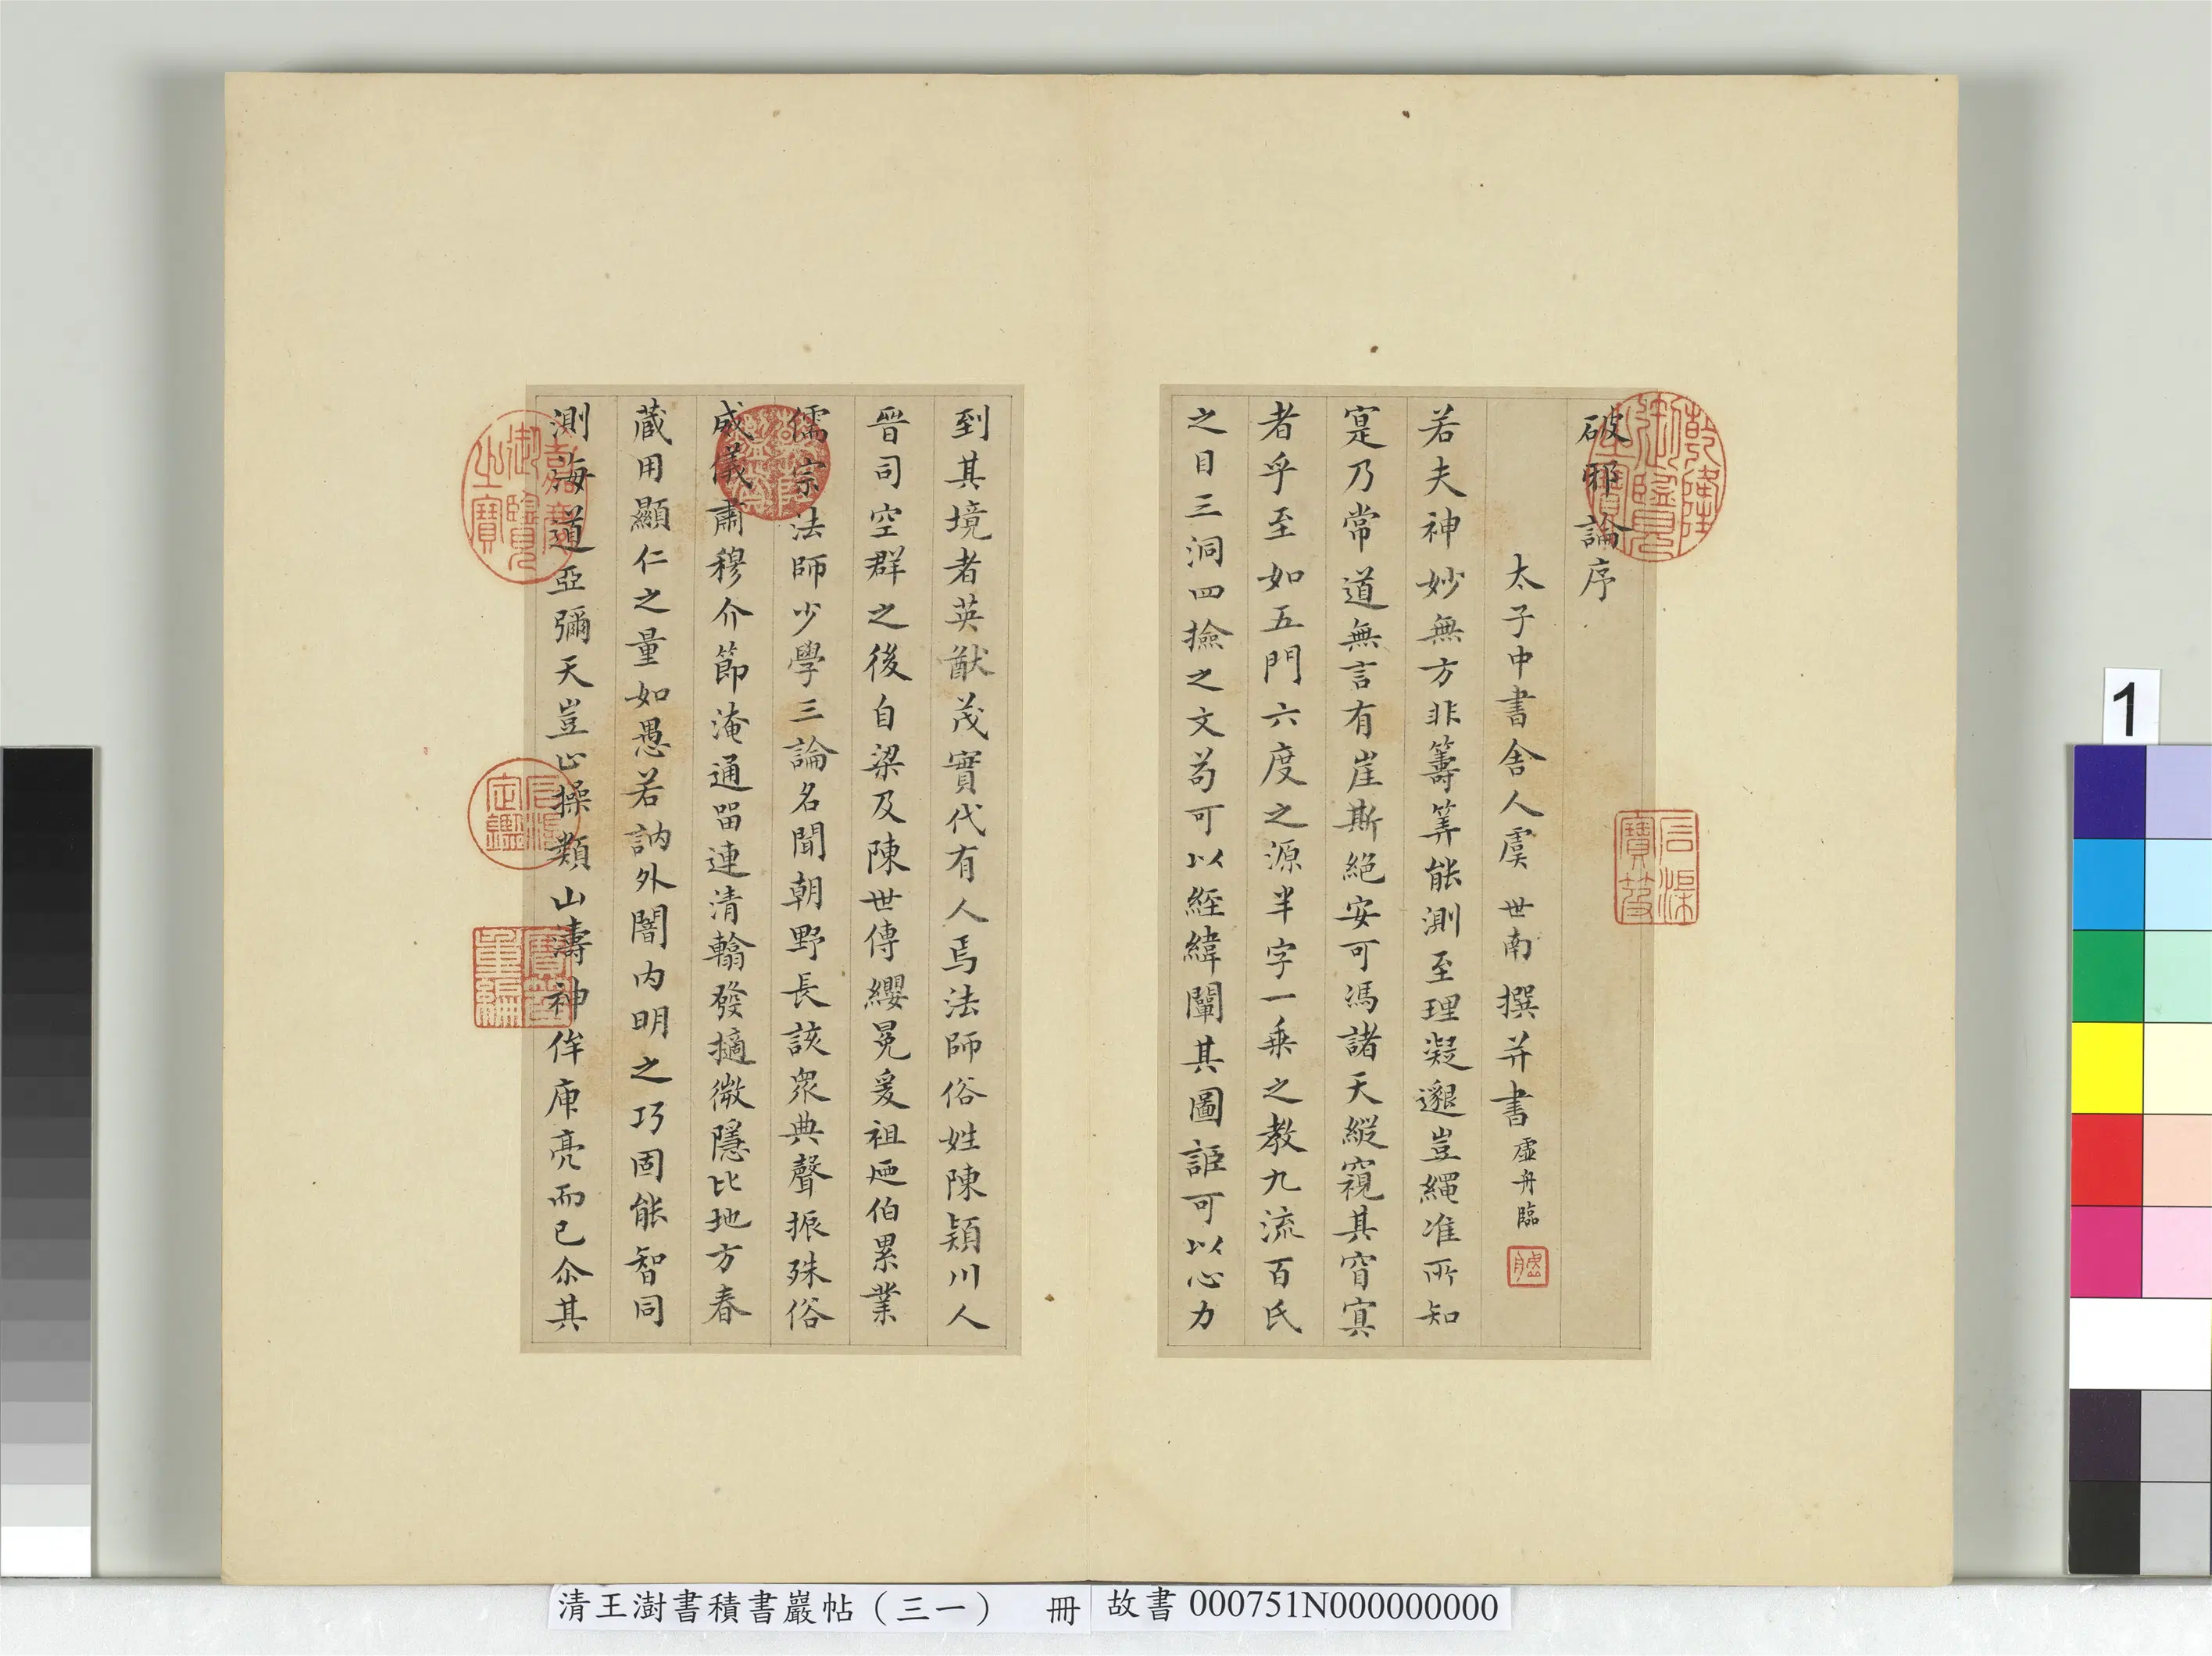 破邪論序
太子中書舍人虞世南撰并書虛舟臨
若夫神妙無方非籌筭能測至理凝邈豈繩准所知
寔乃常道無言有崖斯絕安可馮諸天縱窺其窅寞
者乎至如五門六度之源半字一乗之教九流百氏
之目三洞四撿之文苟可以經緯闡其圖詎可以心力
到其境者英猷茂實代有人焉法師俗姓陳潁川人
晉司空群之後自梁及陳世傳纓冕爰祖迊伯累業
儒宗法師少學三論名聞朝野長該衆典聲振殊俗
威儀肅穆介節淹通留連清翰發擿微隱比地方春
蔵用顯仁之量如愚若訥外闇内明之巧固能智同
測海道亞彌天豈止操類山濤神侔庾亮而已尒其
乾隆御覽之寶
石渠寶笈
嘉慶御覽之寶
石渠定鑑
寶笈重編
1
清王澍書積書巖帖（三一） 冊
故書 000751N000000000